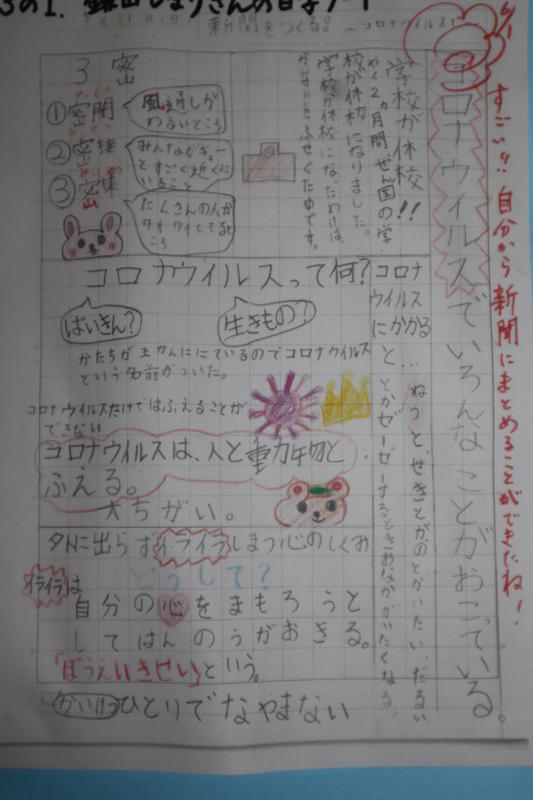 3の1. 鎌田しまりさんの自学ノート
新聞をつくる。 ～コロナウイルスで～
6/1
すごい!! 自分から新聞にまとめることができたね!
コロナウイルスでいろんなことがおこっている。
学校が休校!!
やく2ヵ月間ぜん国の学
校が休校になりました。
学校が休校になったわけは、
かんせんをふせぐためです。
3密
①密閉
風通しが
わるいところ
②密接
みんながギュー
とすごく近くに
いること
③密集
たくさんの人が
ワイワイしてると
ころ
コロナウイルスって何?
はいきん?
生きもの?
かたちが王かんににているのでコロナウイルス
という名前がついた。
コロナウイルスだけではふえることが
できない
コロナウイルスは、人と動物と
ふえる。
大ちがい。
コロナ
ウイルス
にかかる
と…
ねつと、せきとがのどがいたい、だるい
とかゼーゼーするときおなかがいたくなる。
外に出らずイライラしまう心のしくみ
どうして?
イライラは
自分の心をまもろうと
してはんのうがおきる。
「ぼうえいきせい」という。
かいけつ ひとりでなやまない